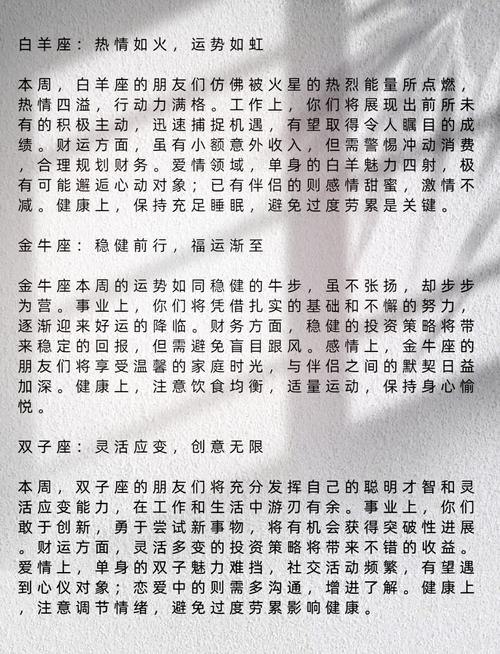 白羊座：热情如火，运势如虹
本周，白羊座的朋友们仿佛被火星的热烈能量所点燃，
热情四溢，行动力满格。工作上，你们将展现出前所未
有的积极主动，迅速捕捉机遇，有望取得令人瞩目的成
绩。财运方面，虽有小额意外收入，但需警惕冲动消费
，合理规划财务。爱情领域，单身的白羊魅力四射，极
有可能邂逅心动对象；已有伴侣的则感情甜蜜，激情不
减。健康上，保持充足睡眠，避免过度劳累是关键。
金牛座：稳健前行，福运渐至
金牛座本周的运势如同稳健的牛步，虽不张扬，却步步
为营。事业上，你们将凭借扎实的基础和不懈的努力，
逐渐迎来好运的降临。财务方面，稳健的投资策略将带
来稳定的回报，但需避免盲目跟风。感情上，金牛座的
朋友们将享受温馨的家庭时光，与伴侣之间的默契日益
加深。健康上，注意饮食均衡，适量运动，保持身心愉
悦。
双子座：灵活应变，创意无限
本周，双子座的朋友们将充分发挥自己的聪明才智和灵
活应变能力，在工作和生活中游刃有余。事业上，你们
敢于创新，勇于尝试新事物，将有机会获得突破性进展
。财运方面，灵活多变的投资策略将带来不错的收益。
爱情上，单身的双子魅力难挡，社交活动频繁，有望遇
到心仪对象；恋爱中的则需多沟通，增进了解。健康上
，注意调节情绪，避免过度劳累影响健康。